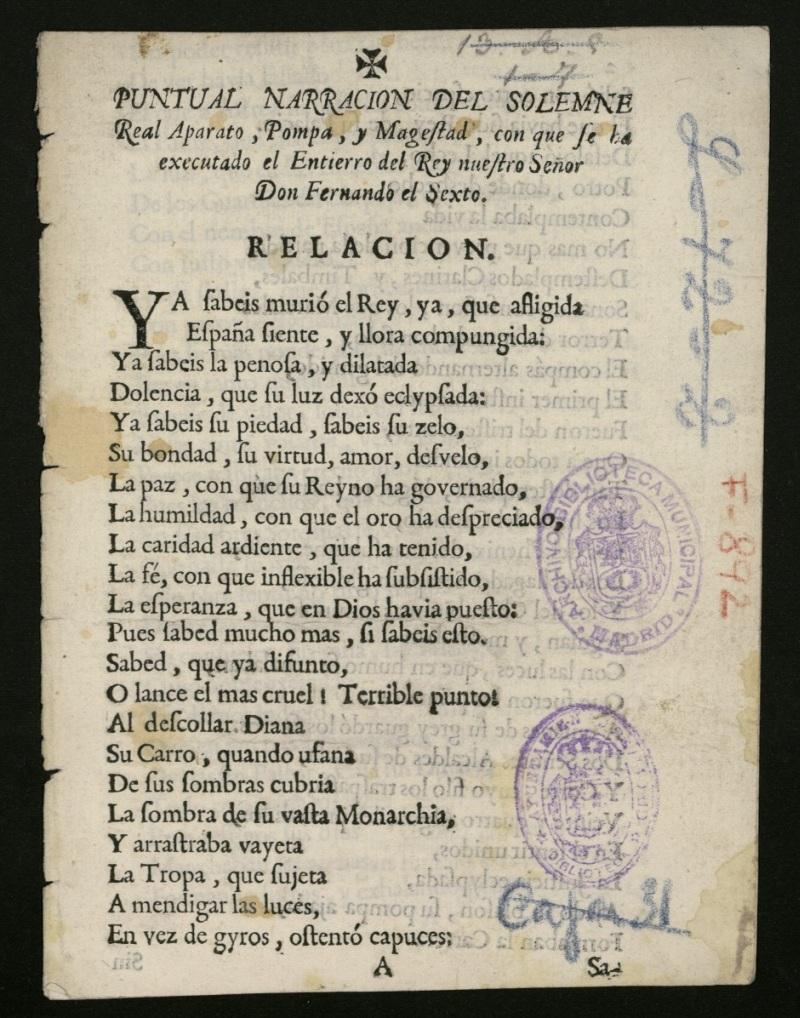 ✠
PUNTUAL NARRACION DEL SOLEMNE
Real Aparato, Pompa, y Magestad, con que se ha
executado el Entierro del Rey nuestro Señor
Don Fernando el Sexto.
RELACION.
YA sabeis murió el Rey, ya, que afligida
España siente, y llora compungida:
Ya sabeis la penosa, y dilatada
Dolencia, que su luz dexó eclypsada:
Ya sabeis su piedad, sabeis su zelo,
Su bondad, su virtud, amor, desvelo,
La paz, con que su Reyno ha governado,
La humildad, con que el oro ha despreciado,
La caridad ardiente, que ha tenido,
La fé, con que inflexible ha subsistido,
La esperanza, que en Dios havia puesto:
Pues sabed mucho mas, si sabeis esto.
Sabed, que ya difunto,
O lance el mas cruel! Terrible punto!
Al descollar Diana
Su Carro, quando ufana
De sus sombras cubria
La sombra de su vasta Monarchia,
Y arrastraba vayeta
La Tropa, que sujeta
A mendigar las luces,
En vez de gyros, ostentó capuces:
A
Sa-
ARCHIVO BIBLIOTECA MUNICIPAL
MADRID
F-892